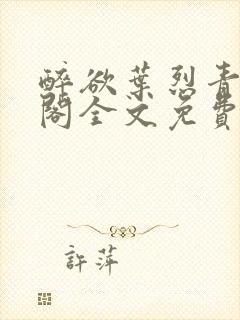 醉欲葉烈青
閣全文免費
許萍